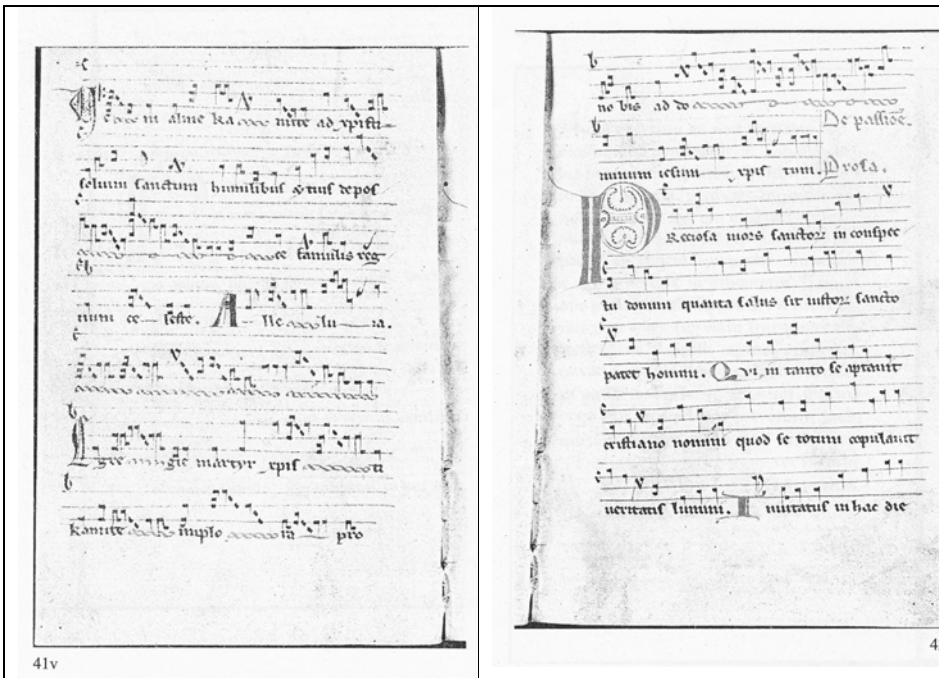 in alme ka nute ad xpisti
solium sanctum humilibus depos
ce famulis reg
num ce leste. A lle lu ia.
E gre gie martyr xpis ti
kanute implo ra pro
41v
no bis ad do
De passiõe.
minum iesum xpis tum. Prosa.
P Reciosa mors sanctoꝝ in conspec
tu domini quanta salus sit iustoꝝ sancto
patet homini. Qui in tanto se aptauit
cristiano nomini quod se totum copulauit
ueritatis lumini. I nuitatus in hac die